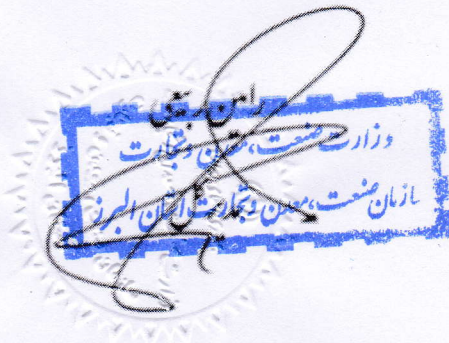 رامین
وزارت صنعت، معدن و تجارت
سازمان صنعت، معدن و تجارت استان البرز